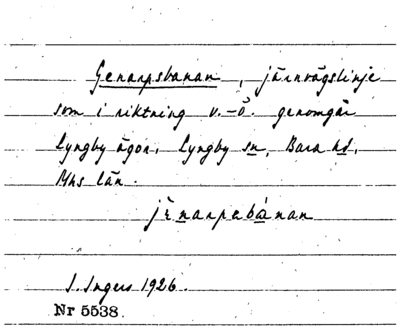 Genarpsbanan, järnvägslinje
som i riktning v.–ö. genomgår
Lyngby ägor, Lyngby sn, Bara hd,
Mhs län.
jènarpsbánan
I. Ingers 1926.
Nr 5538.